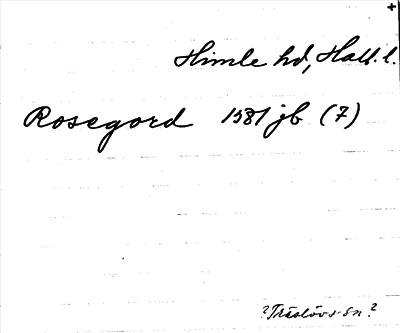 +
Himle hd, Hall. l.
Rosegord 1581 jb (7)
? Träslövs sn ?